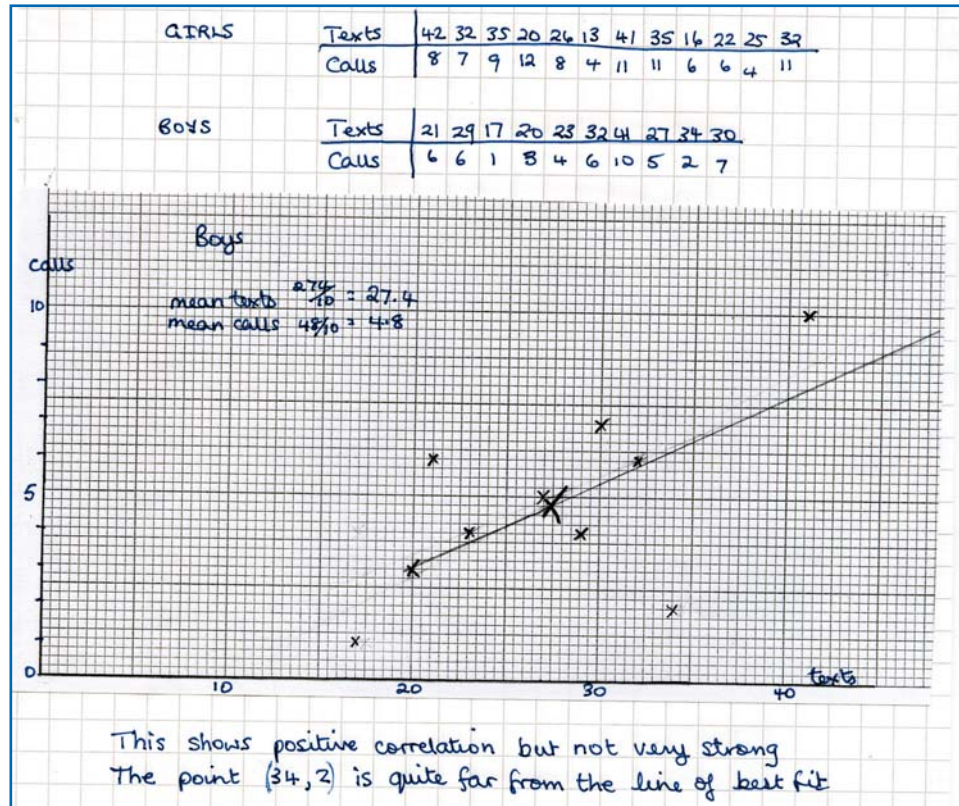 GIRLS Texts 42 32 35 20 26 13 41 35 16 22 25 32
Calls 8 7 9 12 8 4 11 11 6 6 4 11
BOYS Texts 21 29 17 20 23 32 41 27 34 30
Calls 6 6 1 3 4 6 10 5 2 7
Boys
calls
mean texts 274/10 = 27.4
mean calls 48/10 = 4.8
10
5
0
10 20 30 40 texts
This shows positive correlation but not very strong
The point (34,2) is quite far from the line of best fit